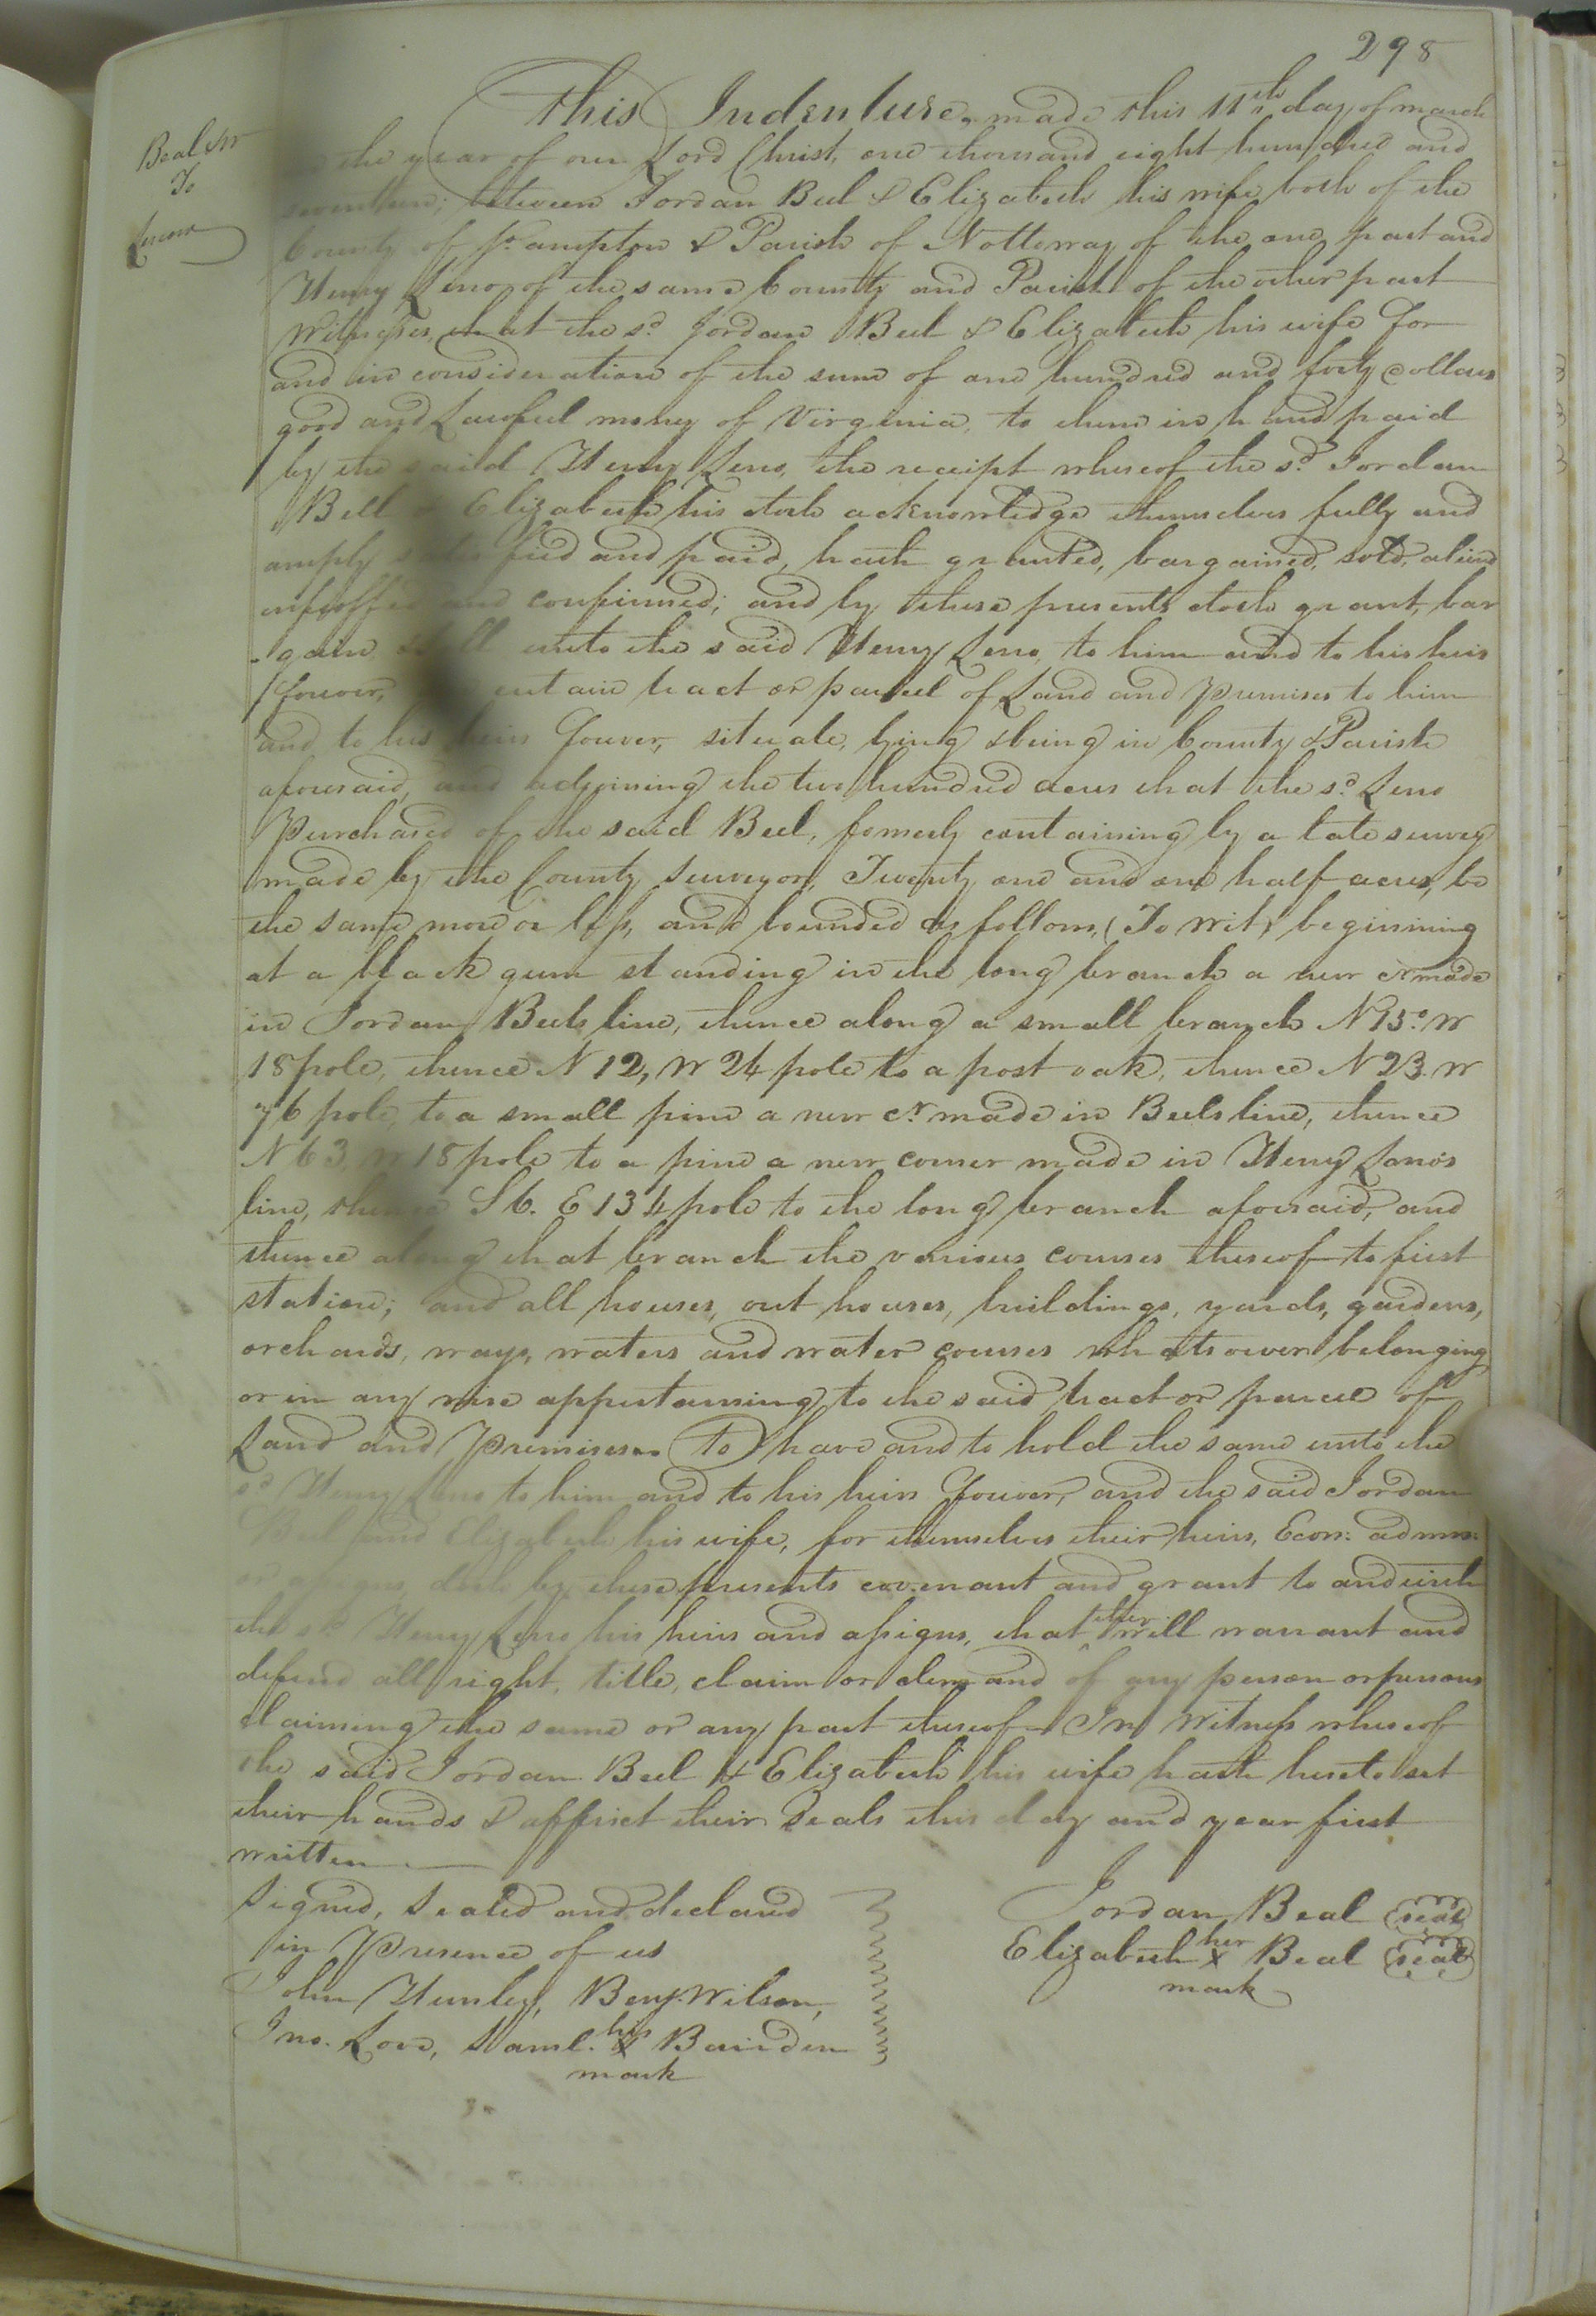 298
Beal &c
To
This Indenture, made this 11th day of march
the year of our Lord Christ, one thousand eight hundred and
seventeen; between Jordan Beel & Elizabeth his wife, both of the
County of S°. ampton & Parish of Nottoway of the one part and
Henry Leno, of the same County and Parish of the other part
Witnesses, that the sd. Jordan Beel & Elizabeth his wife for
and in consideration of the sum of one hundred and forty dollars
good and Lawful money of Virginia, to them in hand paid
by the said Henry Leno, the receipt whereof the sd. Jordan
Bell & Elizabeth his doth acknowledge themselves fully and
amply fied and paid, hath granted, bargained, sold, aliend
enfeoffed and confirmed; and by these presents doth grant, bar
-gain sell unto the said Henry Leno, to him and to his heirs
forever, certain tract or parcel of Land and Premises to him
and to his heirs forever, situate, lying & being in County & Parish
aforesaid, and adjoining the two hundred acres that the sd. Leno
Purchased of the said Beel, formerly containing by a late survey
made by the County Surveyor, Twenty one and one half acres, be
the same more or less, and bounded as follows, (To wit) beginning
at a black gum standing in the long branch a new cr made
in Jordan Beels line, thence along a small branch N 15° W
18 pole, thence N 12, W 24 pole to a post oak, thence N 23. W
76 pole, to a small pine a new cr. made in Beels line, thence
N 63, W 18 pole to a pine a new corner made in Henry Lano's
line, thence S 6. E 134 pole to the long branch aforesaid, and
thence along that branch the various courses thereof to first
station; and all houses, out houses, buildings, yards, gardens,
orchards, ways, waters and water courses whatsoever belonging
or in any wise appertaining to the said tract or parcel of
Land and Premises. To have and to hold the same unto the
sd Henry Leno to him and to his heirs forever, and the said Jordan
Beel and Elizabeth his wife, for themselves their heirs, Ecors: admrs:
or assigns, doth by these presents covenant and grant to and with
the sd. Henry Leno his heirs and assigns, that they will warrant and
defend all right, title, claim or demand of any person or persons
claiming the same or any part thereof - In Witness whereof
the said Jordan Beel & Elizabeth his wife hath hereto set
their hands & affixt their Seals this day and year first
written
Signed, Sealed and declared
in Presence of us
John Hunley, Benj. Wilson,
Jno. Love, Saml. his x Bairden
mark
Jordan Beal seal
Elizabeth her x Beal seal
mark